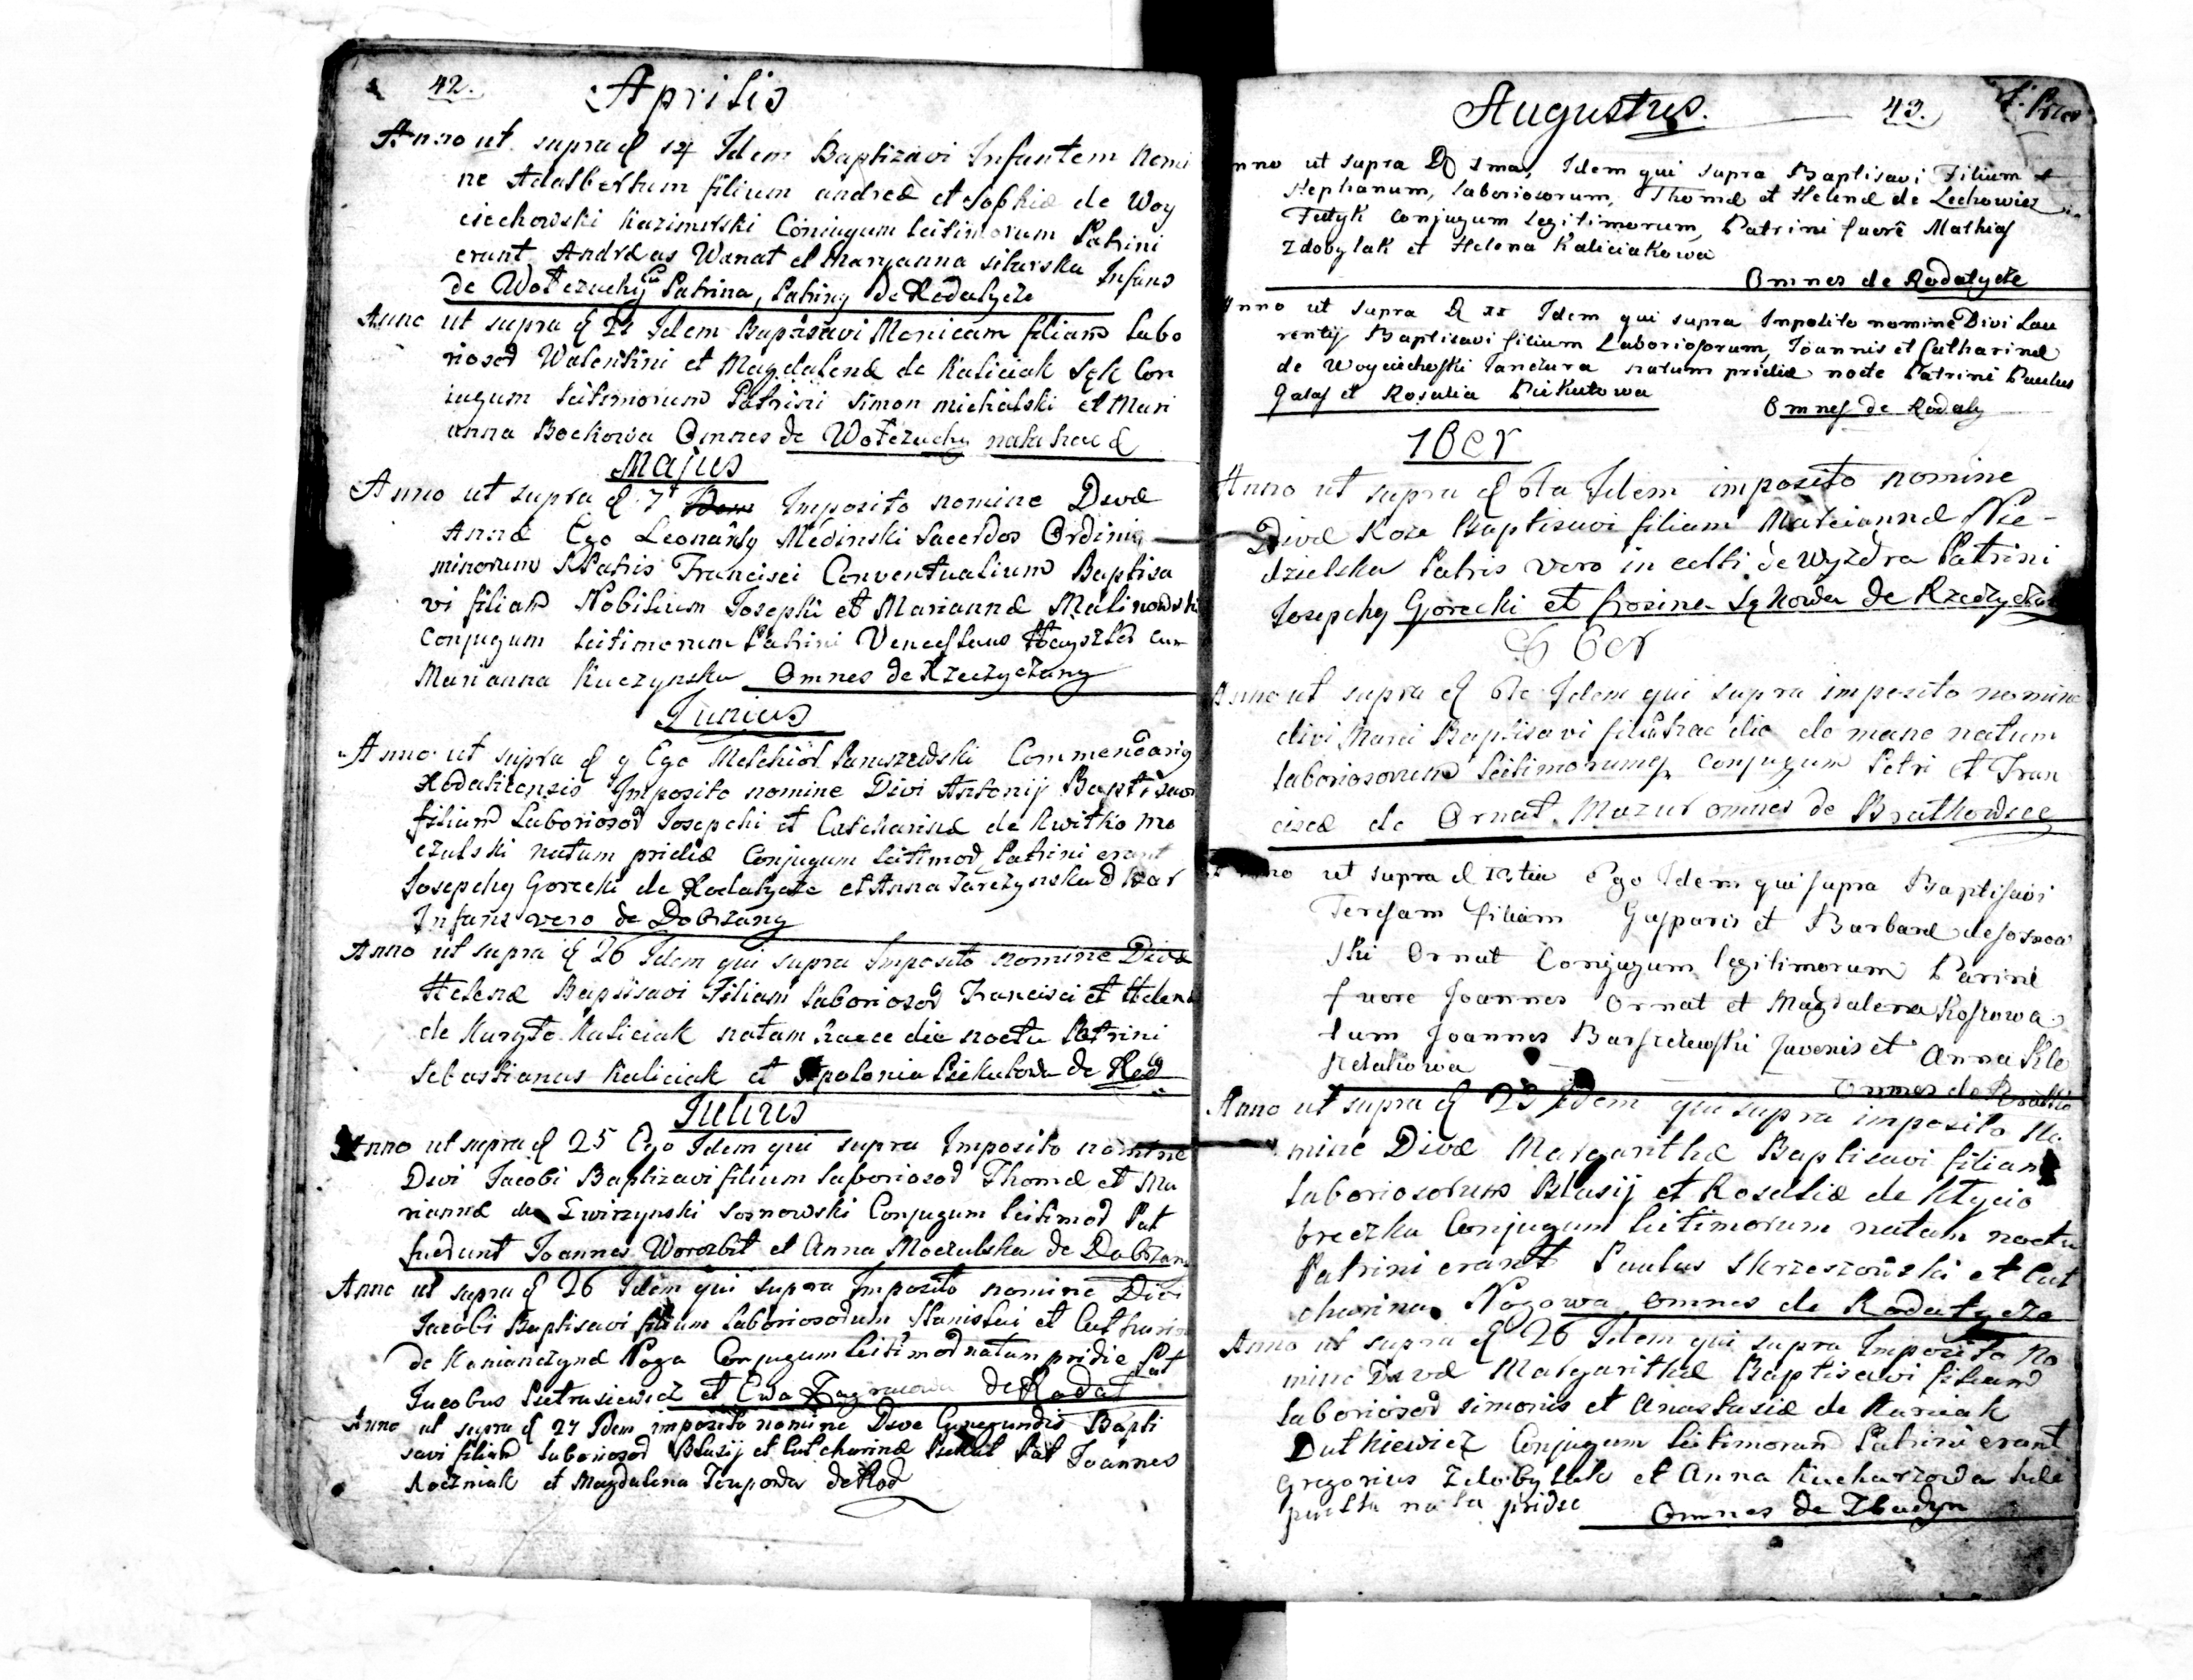 42. Aprilis
Anno ut supra d 14 Idem Baptizavi Infantem nomi
ne Adalbertum filium andreæ et Sophiæ de Woy
ciechowski Kazimirski Coniugum leitimorum Patrini
erant Andreas Wanat et Maryanna sikorska Infans
de Wołczuchy Patrina, Patrinq de Rodatycze
Anno ut supra d 21 Idem Baptisavi Monicam filiam Labo
riosor Walentini et Magdalenæ de Kaliciak Sęk Con
iugum leitimorum Patrini Simon michalski et Mari
anna Bockowa Omnes de Wołczuchy nata hac d
Majus
Anno ut supra d 7 Imposito nomine Divæ
Annæ Ego Leonardq Medinski Sacerdos Ordinis
minorum S Patris Francisci Conventualium Baptisa
vi filiam Nobilium Josephi et Mariannæ Malinowski
Conjugum leitimorum Patrini Venceslaus cum
Marianna Kuczynska Omnes de Rzeczyczany
Junius
Anno ut supra d 9 Ego Melchior Paruszewski Commendariq
Rodaticensis Imposito nomine Divi Antonij Baptisavi
filium Laboriosor Josepchi et Catcharinæ de Kwitko Mo
czulski natum pridie Conjugum leitimor Patrini erant
Josepchq Gorecki de Rodatycze et Anna Tarczynska d
Infans vero de Dobrzany
Anno ut supra d 26 Idem qui supra Imposito nomine Divæ
Helenæ Baptisavi Filiam laboriosor Francisci et Helenæ
de Kuryło Kaliciak natam haece die noctu Patrini
Sebastianus Kaliciak et Apolonia Piekutowa de Rod
Julius
Anno ut supra d 25 Ego Idem qui supra Imposito nomine
Divi Jacobi Baptizavi filium laboriosor Thomæ et Ma
riannæ de Swirzynski Sosnowski Conjugum leitimor Pat
fuerunt Joannes Worozbit et Anna Moczulska de Dobrzan
Anno ut supra d 26 Idem qui supra Imposito nomine Divi
Jacobi Baptisavi filium Laboriosorum Stanislai et Catharin
de Kanianczynæ Noga Conjugum leitimor natum pridie Pat
Jacobus Pietrasiewicz et Ewa de Rodat
Anno ut supra d 27 Idem imposito nomine Dive Cunegundis Bapti
savi filiam Laboriosor Blasij et Catcharinæ Piekut Pat Joannes
Roczniak et Magdalena Tenpowa de Rod
Augustus. 43.
nno ut supra D 1ma, Idem qui supra Baptisavi Filium
Stephanum, laboriosorum, Thomæ et Helenæ de Lechowicz
Fedyk conjugum Legitimorum, Patrini fuerê Mathias
Zdobylak et Helena Kaliciakowa
Omnes de Rodatycze
Anno ut supra D XI Idem qui supra Inposito nomine Divi Lau
rentij Baptisavi filium Laboriosorum, Joannis et Catharinæ
de Woyciechoski Janczura natum pridie nocte Patrini Paulus
Galas et Rosalia Piekutowa
Omnes de Rodaty
7ber
Anno ut supra d 6ta Idem imposito nomine
Divæ Roze Baptisavi filiam Marciannæ Nie-
dzielska Patris vero in celbi de Wyzdra Patrini
Josepchq Gorecki et Sękowa de Rzeczyczan
8ber
Anno ut supra d 6ta Idem qui supra imposito nomine
divi Marci Baptisavi filiû hac die de mane natum
laboriosorum leitimorumq conjugum Petri et Fran
ciscæ de Ornat. Mazur omnes de Bratkowice
Anno ut supra d 12tia Ego Idem qui supra Baptisavi
Teresam filiam Gasparis et Barbaræ de Sosnow
ski Ornat Conjugum legitimorum Parini
fuere Joannes Ornat et Magdalena KosRowa
tum Joannes Barszczewski Juvenis et Anna
Omnes de Bratko
Anno ut supra d 23 Idem qui supra imposito No
mine Divæ Margarithæ Baptisavi filiam
laboriosorum Blasij et Rosaliæ de Hycio
breczka Conjugum leitimorum natam noctu
Patrini erant Paulus Skrzeszowski et Cat
charina Nogowa omnes de Rodatycze
Anno ut supra d 26 Idem qui supra Imposito No
mine Divæ Margarithæ Baptisavi filiam
laboriosor Simonis et Anastasiæ de Kurciak
Dutkiewicz Conjugum leitimorum Patrini erant
Gregorius Zdobylak et Anna Kucharzowa
puella nata pridie Omnes de Zbadyn